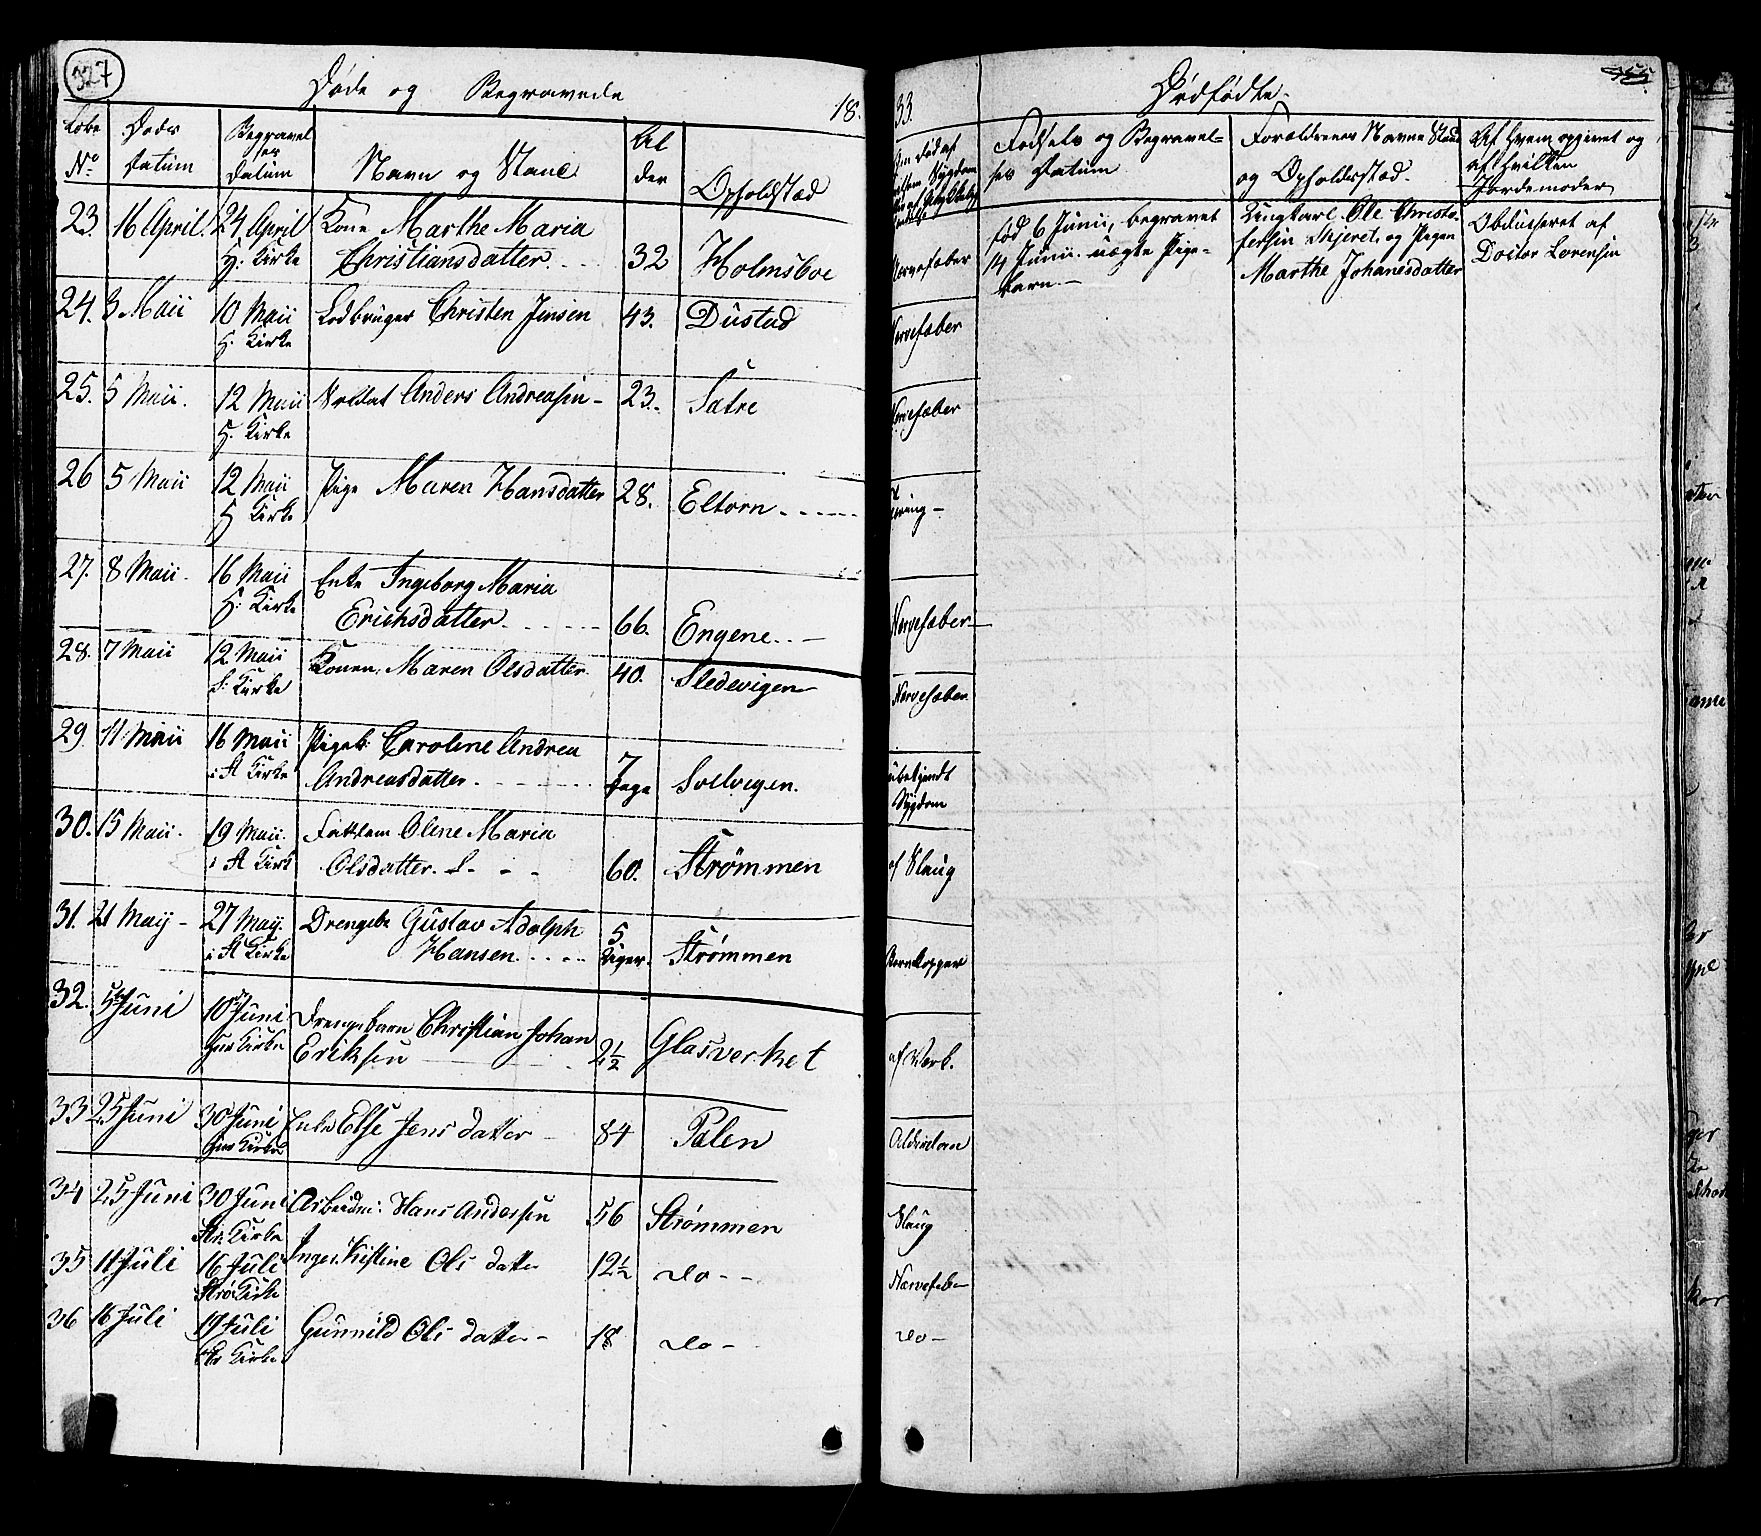 327
Døde og Begravede
18.
Løbe
N.º
Døds
Datum
Begravel
ses
Datum
Navn og Stand
Al
der
Opholdsted
23. 16 April. 24 April Kone Marthe Maria
H: Kirke Christiansdatter. 32 Holmsboe
24. 3 Maii 10 Maii Lodbruger Christen Jensen 43. Dustad
H: Kirke
25. 5 Maii. 12 Maii Anders Andreasen - 23. Satre
H. Kirke
26 5 Maii 12 Maii Pige Maren Hansdatter 28. Eltorn
H Kirke
27. 8 Maii. 16 Maii Enke Ingeborg Maria
H: Kirke Erichsdatter. 66. Engene. -
28. 7 Maii 12 Maii Konen Maren Olsdatter. 40. Sledevigen
S: Kirke
29. 11 Maii 16 Maii Pigeb: Caroline Andrea
i St Kirke Andreasdatter. 7 Dage Solvigen.
30. 15 Maii. 19 Maii. Fattlem Olene Maria
i St Kirk Olsdatter. 60. Strømmen
31. 21 Maij - 27 Maij. Drengebn Gustav Adolph
i St Kirke Hansen. 5 Uger. Strømmen
32. 5te Juni 10de Juni Drengebarn Christian Johan
Hur Kirke Eriksen 2½ Glasverket
33 25 Juni 30 Juni Enke Else Jens datter - 84 Palen
Hur Kirke
34 25 Juni 30 Juni Arbeidm: Hans Andersen 56 Strømmen
Str. Kirke
35 11 Juli 16 Juli Inger Kistine Ols datter 12½ do - -
Strø: Kirke
36 16 Juli 19 Juli Gunnild Ols datter - 18 do -
Str Kirke
33.
Dødfødte.
Fødsels og Begravel=
ses Datum
Forældrenes Navne Stand
og Opholdssted.
Af hvem opgivet og
af hvilken
Jordemoder
Nervefeber
fød 6 Junii, begravet
14 Junii. uægte Pige-
barn. -
Ungkarl Ole Christo-
fersen Skjeret, og Pigen
Marthe Johanesdatter
Obduceret af
Doctor Lorensen
Nervefeber
Nervefeber
Nervefeber
Nervefeber
ubekjendt
Sygdom
af Slaug
Børnekopper
af Værk.
Alderdom
Slaug
Nærvefeber
do -